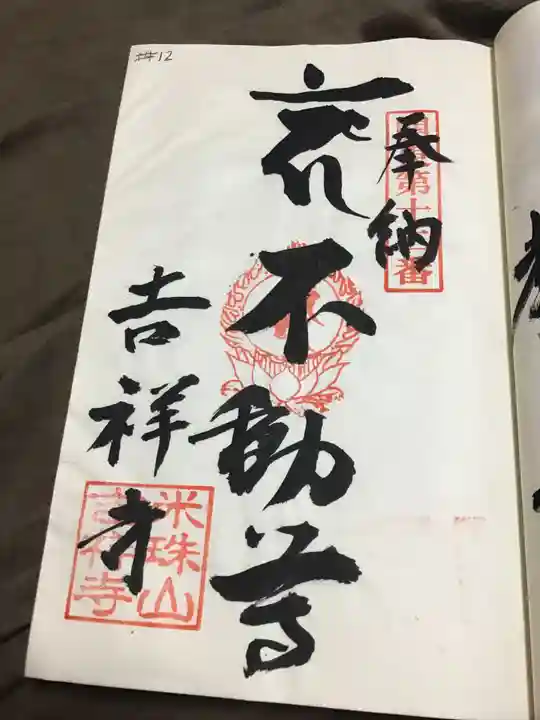 12
奉納
第十 番
不動尊
吉祥寺
米珠山
吉祥寺